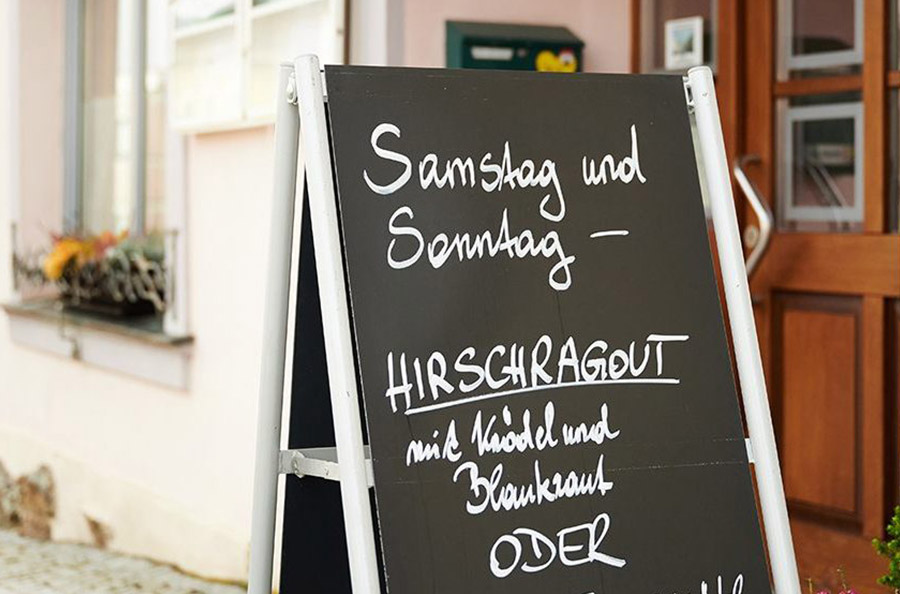 Samstag und
Sonntag –
HIRSCHRAGOUT
mit Knödel und
Blaukraut
ODER